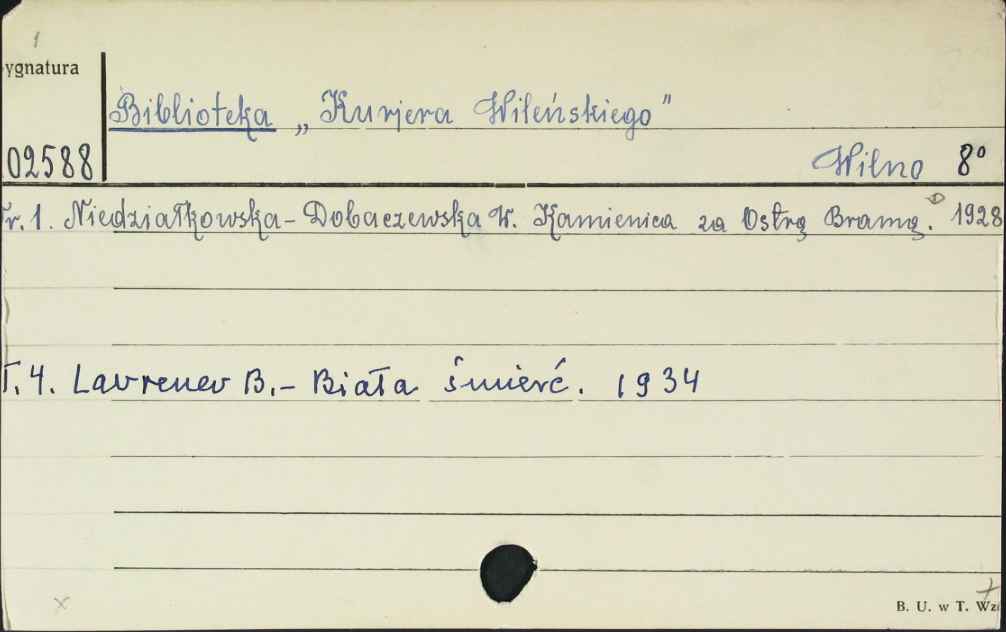 1
ygnatura
Biblioteka „Kurjera Wileńskiego"
02588
Wilno 8°
r. 1. Niedziałkowska-Dobaczewska W. Kamienica za Ostrą Bramą. 1928
T. 4. Lavrenev B.- Biała śmierć. 1934
x
B. U. w T. Wz